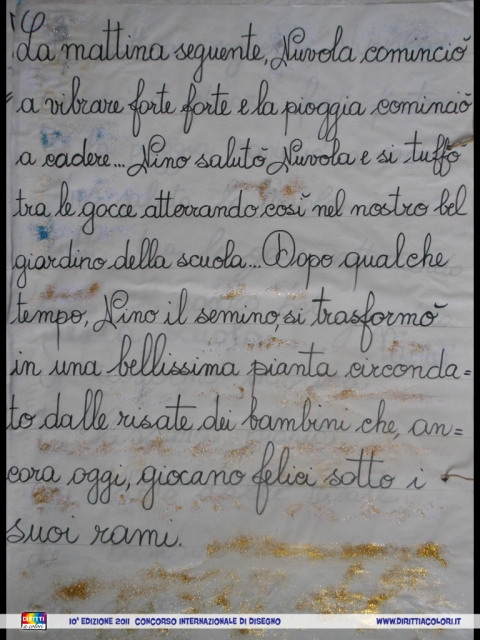 La mattina seguente, Nuvola cominciò
a vibrare forte forte e la pioggia cominciò
a cadere... Nino salutò Nuvola e si tuffò
tra le gocce atterrando così nel nostro bel
giardino della scuola... Dopo qualche
tempo, Nino il semino, si trasformò
in una bellissima pianta circonda=
to dalle risate dei bambini che, an=
cora oggi, giocano felici sotto i
suoi rami.
DIRITTI a colori
10° EDIZIONE 2011 CONCORSO INTERNAZIONALE DI DISEGNO
WWW.DIRITTIACOLORI.IT